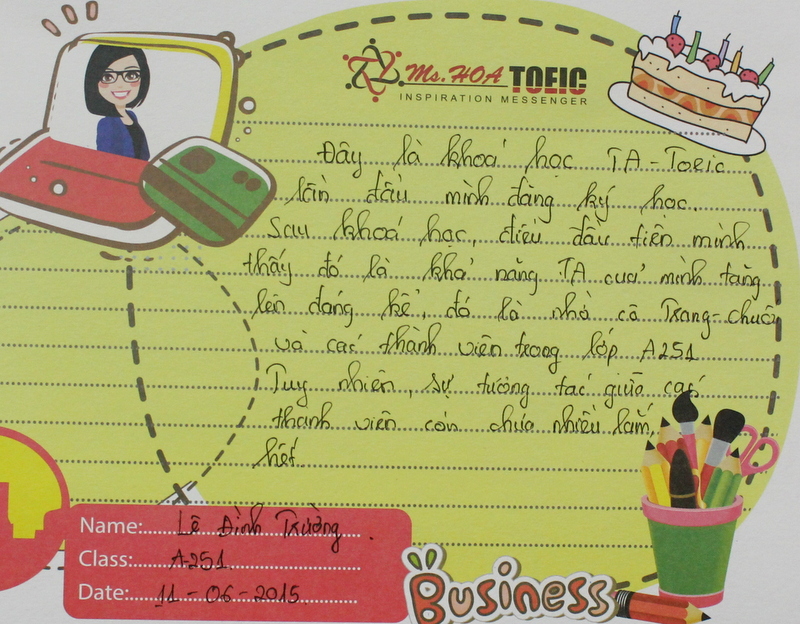 Ms. HOA TOEIC
INSPIRATION MESSENGER
Đây là khoá học TA - Toeic
lần đầu mình đăng ký học.
Sau khoá học, điều đầu tiên mình
thấy đó là khả năng TA của mình tăng
lên đáng kể, đó là nhờ cô Trang - chuối
và các thành viên trong lớp A251
Tuy nhiên, sự tương tác giữa các
thành viên còn chưa nhiều lắm,
hết.
Name: Lê Đình Trường.
Class: A251
Date: 11 - 06 - 2015
Business